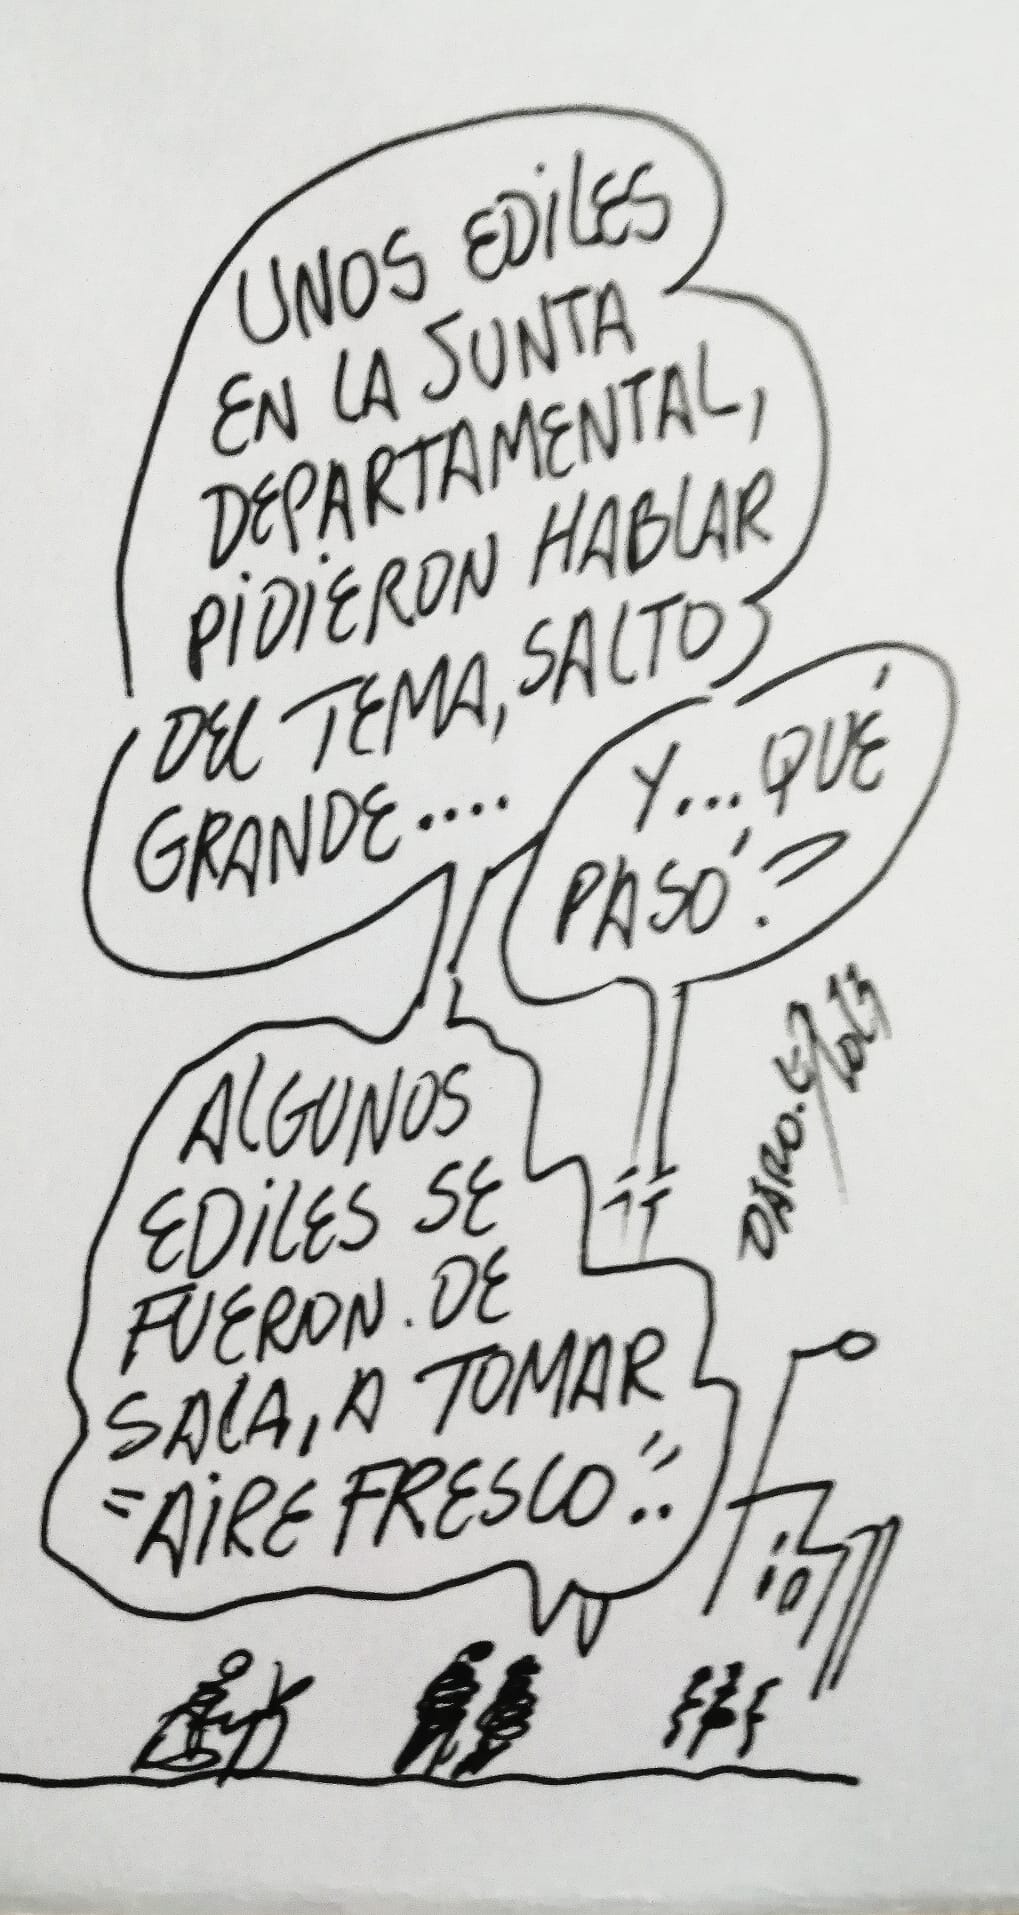 UNOS EDILES
EN LA JUNTA
DEPARTAMENTAL,
PIDIERON HABLAR
DEL TEMA, SALTO
GRANDE....
Y...QUÉ
PASÓ?
ALGUNOS
EDILES SE
FUERON. DE
SALA, A TOMAR
"AIRE FRESCO"..